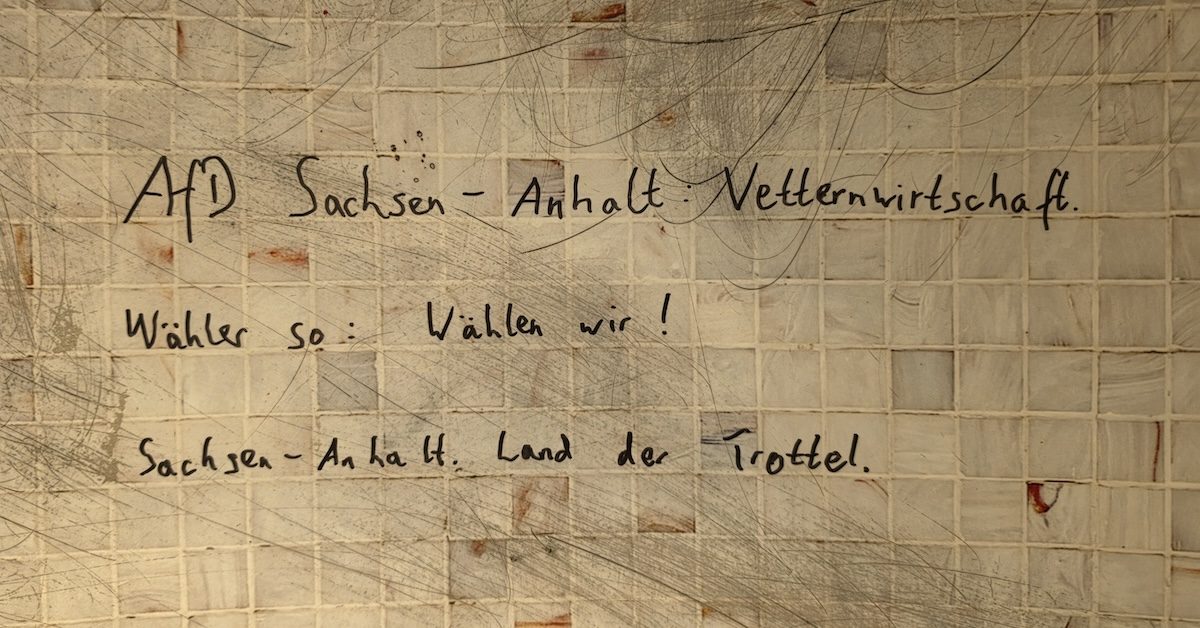 AfD Sachsen-Anhalt: Vetternwirtschaft.
Wähler so: Wählen wir!
Sachsen-Anhalt. Land der Trottel.